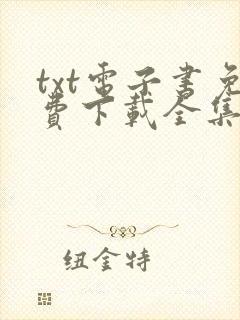 txt電子書免
費下載全集
纽金特